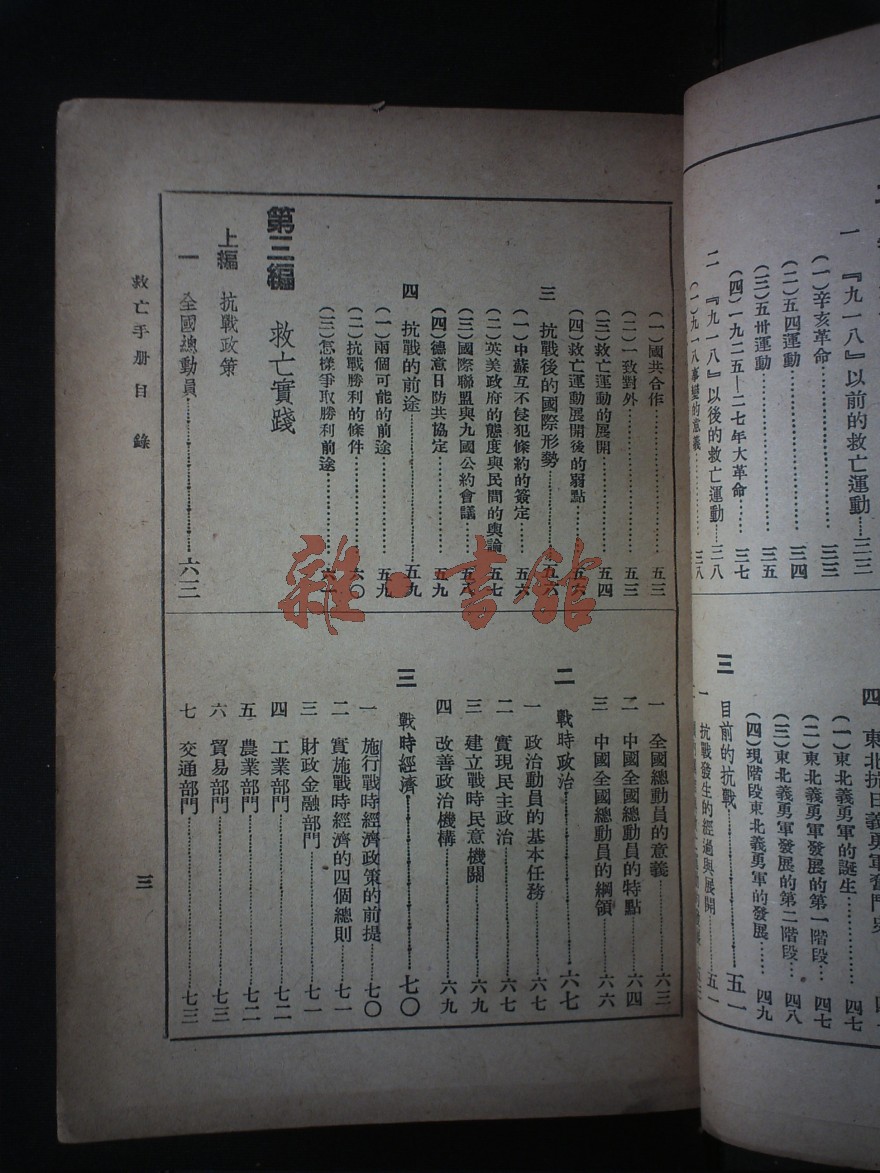 一 『九一八』以前的救亡運動……三三
(一)辛亥革命……三三
(二)五四運動……三四
(三)五卅運動……三五
(四)一九二五—二七年大革命……三七
二 『九一八』以後的救亡運動……三八
(一)九一八事變的意義……三八
四 東北抗日義勇軍奮鬥史
(一)東北義勇軍的誕生……四七
(二)東北義勇軍發展的第一階段……四七
(三)東北義勇軍發展的第二階段……四八
(四)現階段東北義勇軍的發展……四九
三 目前的抗戰……五一
一 抗戰發生的經過與展開……五一
(一)國共合作……五三
(二)一致對外……五三
(三)救亡運動的展開……五四
(四)救亡運動展開後的弱點……五六
三 抗戰後的國際形勢……五六
(一)中蘇互不侵犯條約的簽定……五六
(二)英美政府的態度與民間的輿論……五七
(三)國際聯盟與九國公約會議……五八
(四)德意日防共協定……五九
四 抗戰的前途……五九
(一)兩個可能的前途……五九
(二)抗戰勝利的條件……六〇
(三)怎樣爭取勝利前途……六一
第三編 救亡實踐
上編 抗戰政策
一 全國總動員……六三
一 全國總動員的意義……六三
二 中國全國總動員的特點……六四
三 中國全國總動員的綱領……六六
二 戰時政治……六七
一 政治動員的基本任務……六七
二 實現民主政治……六七
三 建立戰時民意機關……六九
四 改善政治機構……六九
三 戰時經濟……七〇
一 施行戰時經濟政策的前提……七〇
二 實施戰時經濟的四個總則……七一
三 財政金融部門……七一
四 工業部門……七二
五 農業部門……七二
六 貿易部門……七三
七 交通部門……七三
救亡手册目錄
三
雜·書館